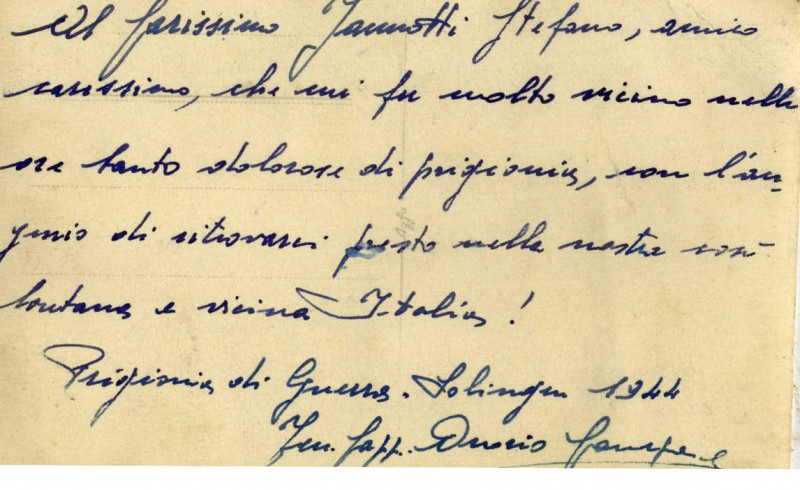 Al Carissimo Iannotti Stefano, amico
carissimo, che mi fu molto vicino nelle
ore tanto dolorose di prigionia, con l'au-
gurio di ritrovarci presto nella nostra così
lontana e vicina Italia!
Prigionia di Guerra. Solingen 1944
Ten. Capp.